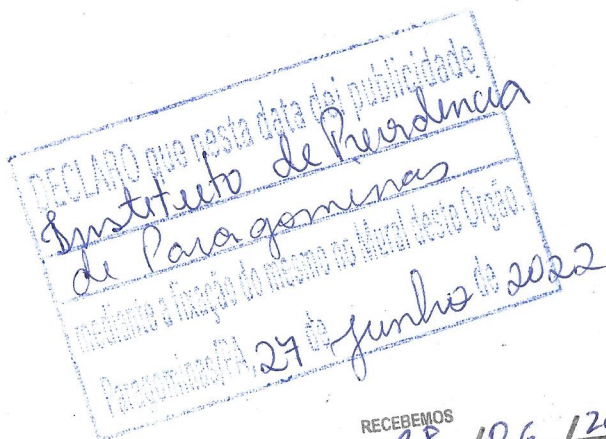 DECLARO que nesta data dei publicidade
Instituto de Previdencia
de Paragominas
mediante a fixação do mesmo no Mural deste Orgão.
Paragominas/PA, 27 de Junho de 2022
RECEBEMOS
/06/